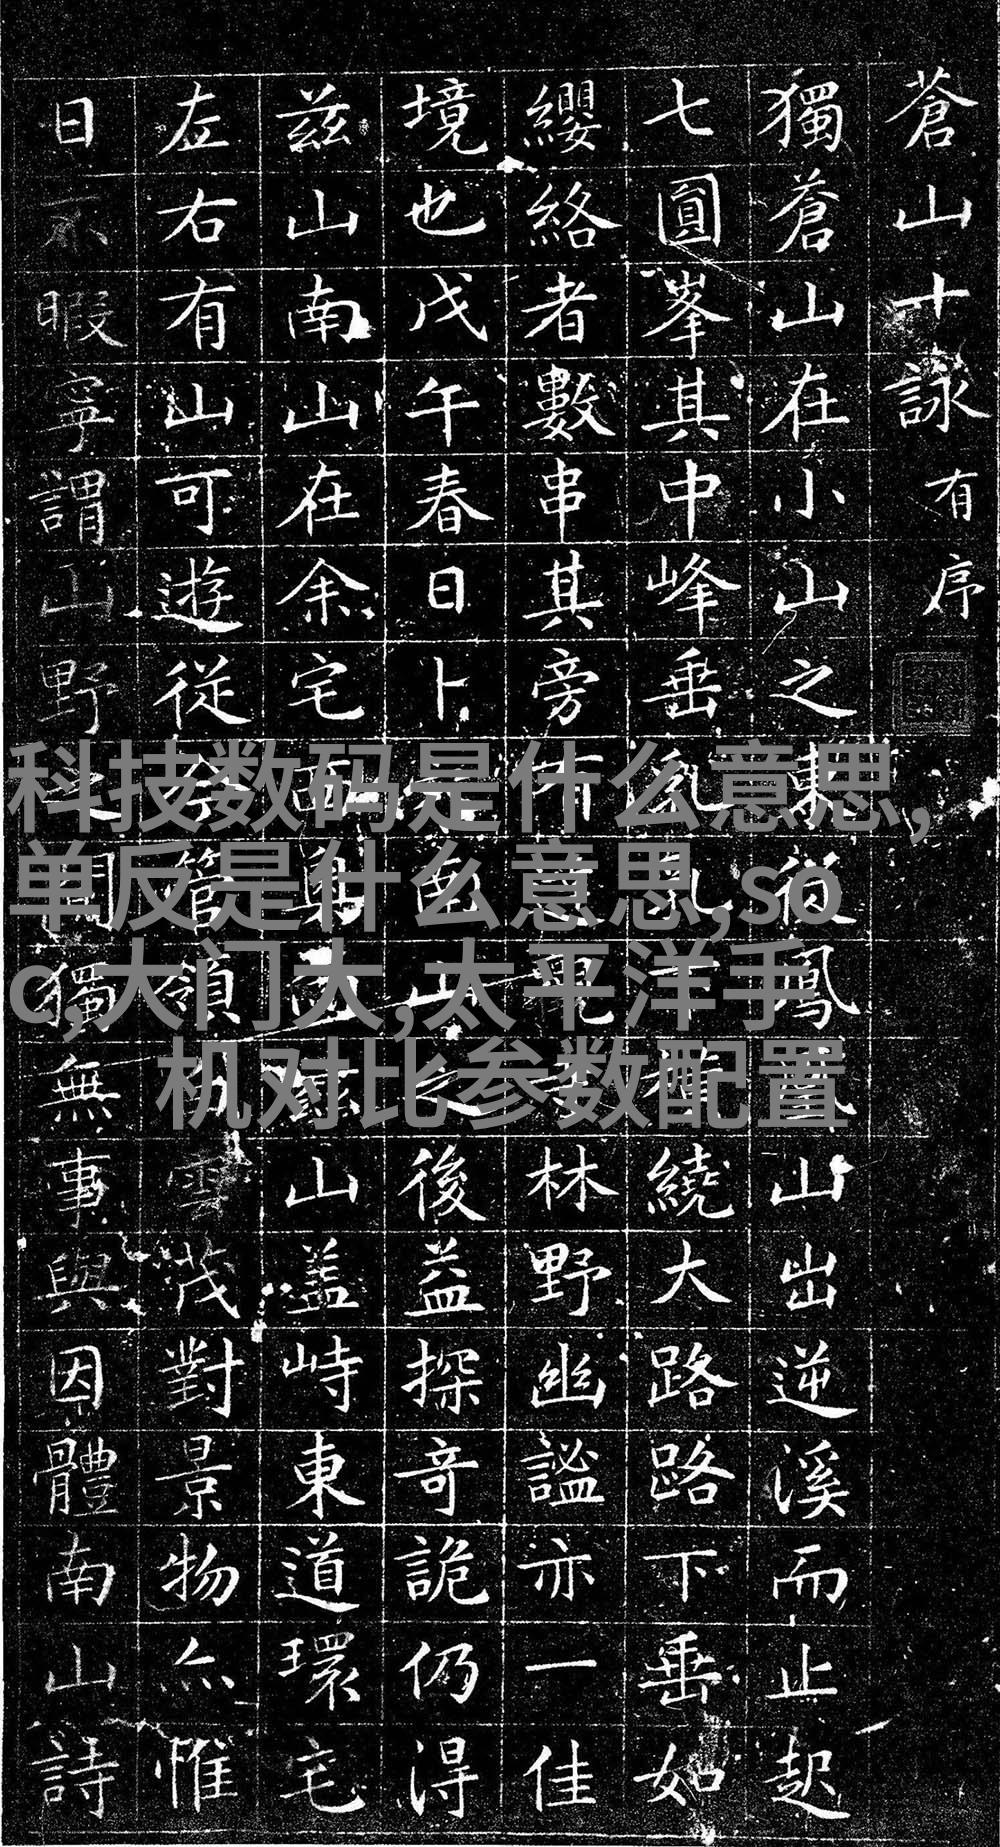 蒼山十詠 有序
獨蒼山在小山之東從鳳山出逆溪而止起
七圓峯其中峰垂乳下繞大路路下垂如
纓絡者數串其旁林野幽謐亦一佳
境也戊午春日卜山之後益探奇詭仍得
茲山南山在余宅山盖峙東道環宅
左右有山可遊從管領雲茂對景物亦惟
日不暇寧謂山野之間獨無事與因體南山詩
科技数码是什么意思,
单反是什么意思,so
c,大门大,太平洋手
机对比参数配置